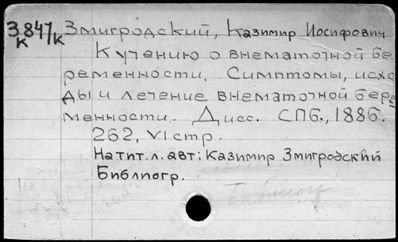 З 847к Змигродский, Казимир Иосифович
К
К учению о внематочной бе
ременности. Симптомы, исхо
ды и лечение внематочной бере
менности. Дисс. СПб., 1886.
262, VI стр.
На тит. л. авт: Казимир Змигродский
Библиогр.